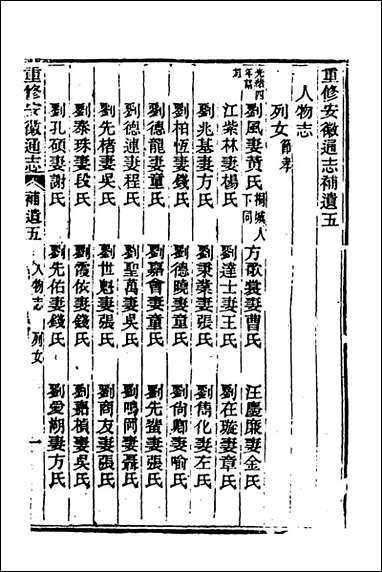 重修安徽通志補遺五
人物志
列女節孝
劉風妻黃氏桐城人下同 方歌裳妻曹氏 汪慶廉妻金氏
光緒四年
江柴林妻楊氏 劉達士妻王氏 劉在璇妻章氏
劉兆基妻方氏 劉秉藥妻張氏 劉儁化妻左氏
劉柏恆妻錢氏 劉德曉妻童氏 劉尙卿妻喻氏
劉德龍妻童氏 劉嘉會妻童氏 劉先蜚妻張氏
劉德連妻程氏 劉聖萬妻吳氏 劉鳴岡妻聶氏
劉先楮妻吳氏 劉世魁妻張氏 劉商友妻張氏
劉泰珠妻段氏 劉霞依妻錢氏 劉嘉楨妻吳氏
劉孔碩妻謝氏 劉先佑妻錢氏 劉愛湖妻方氏
重修安徽通志 補遺五 人物志 列女 一